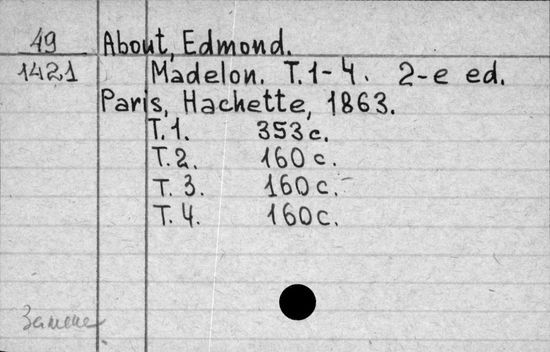 49 About, Edmond.
1421 Madelon. T.1-4. 2-e ed.
Paris, Hachette, 1863.
T.1. 353 c.
T.2. 160 c.
T. 3. 160 c.
T. 4. 160 c.